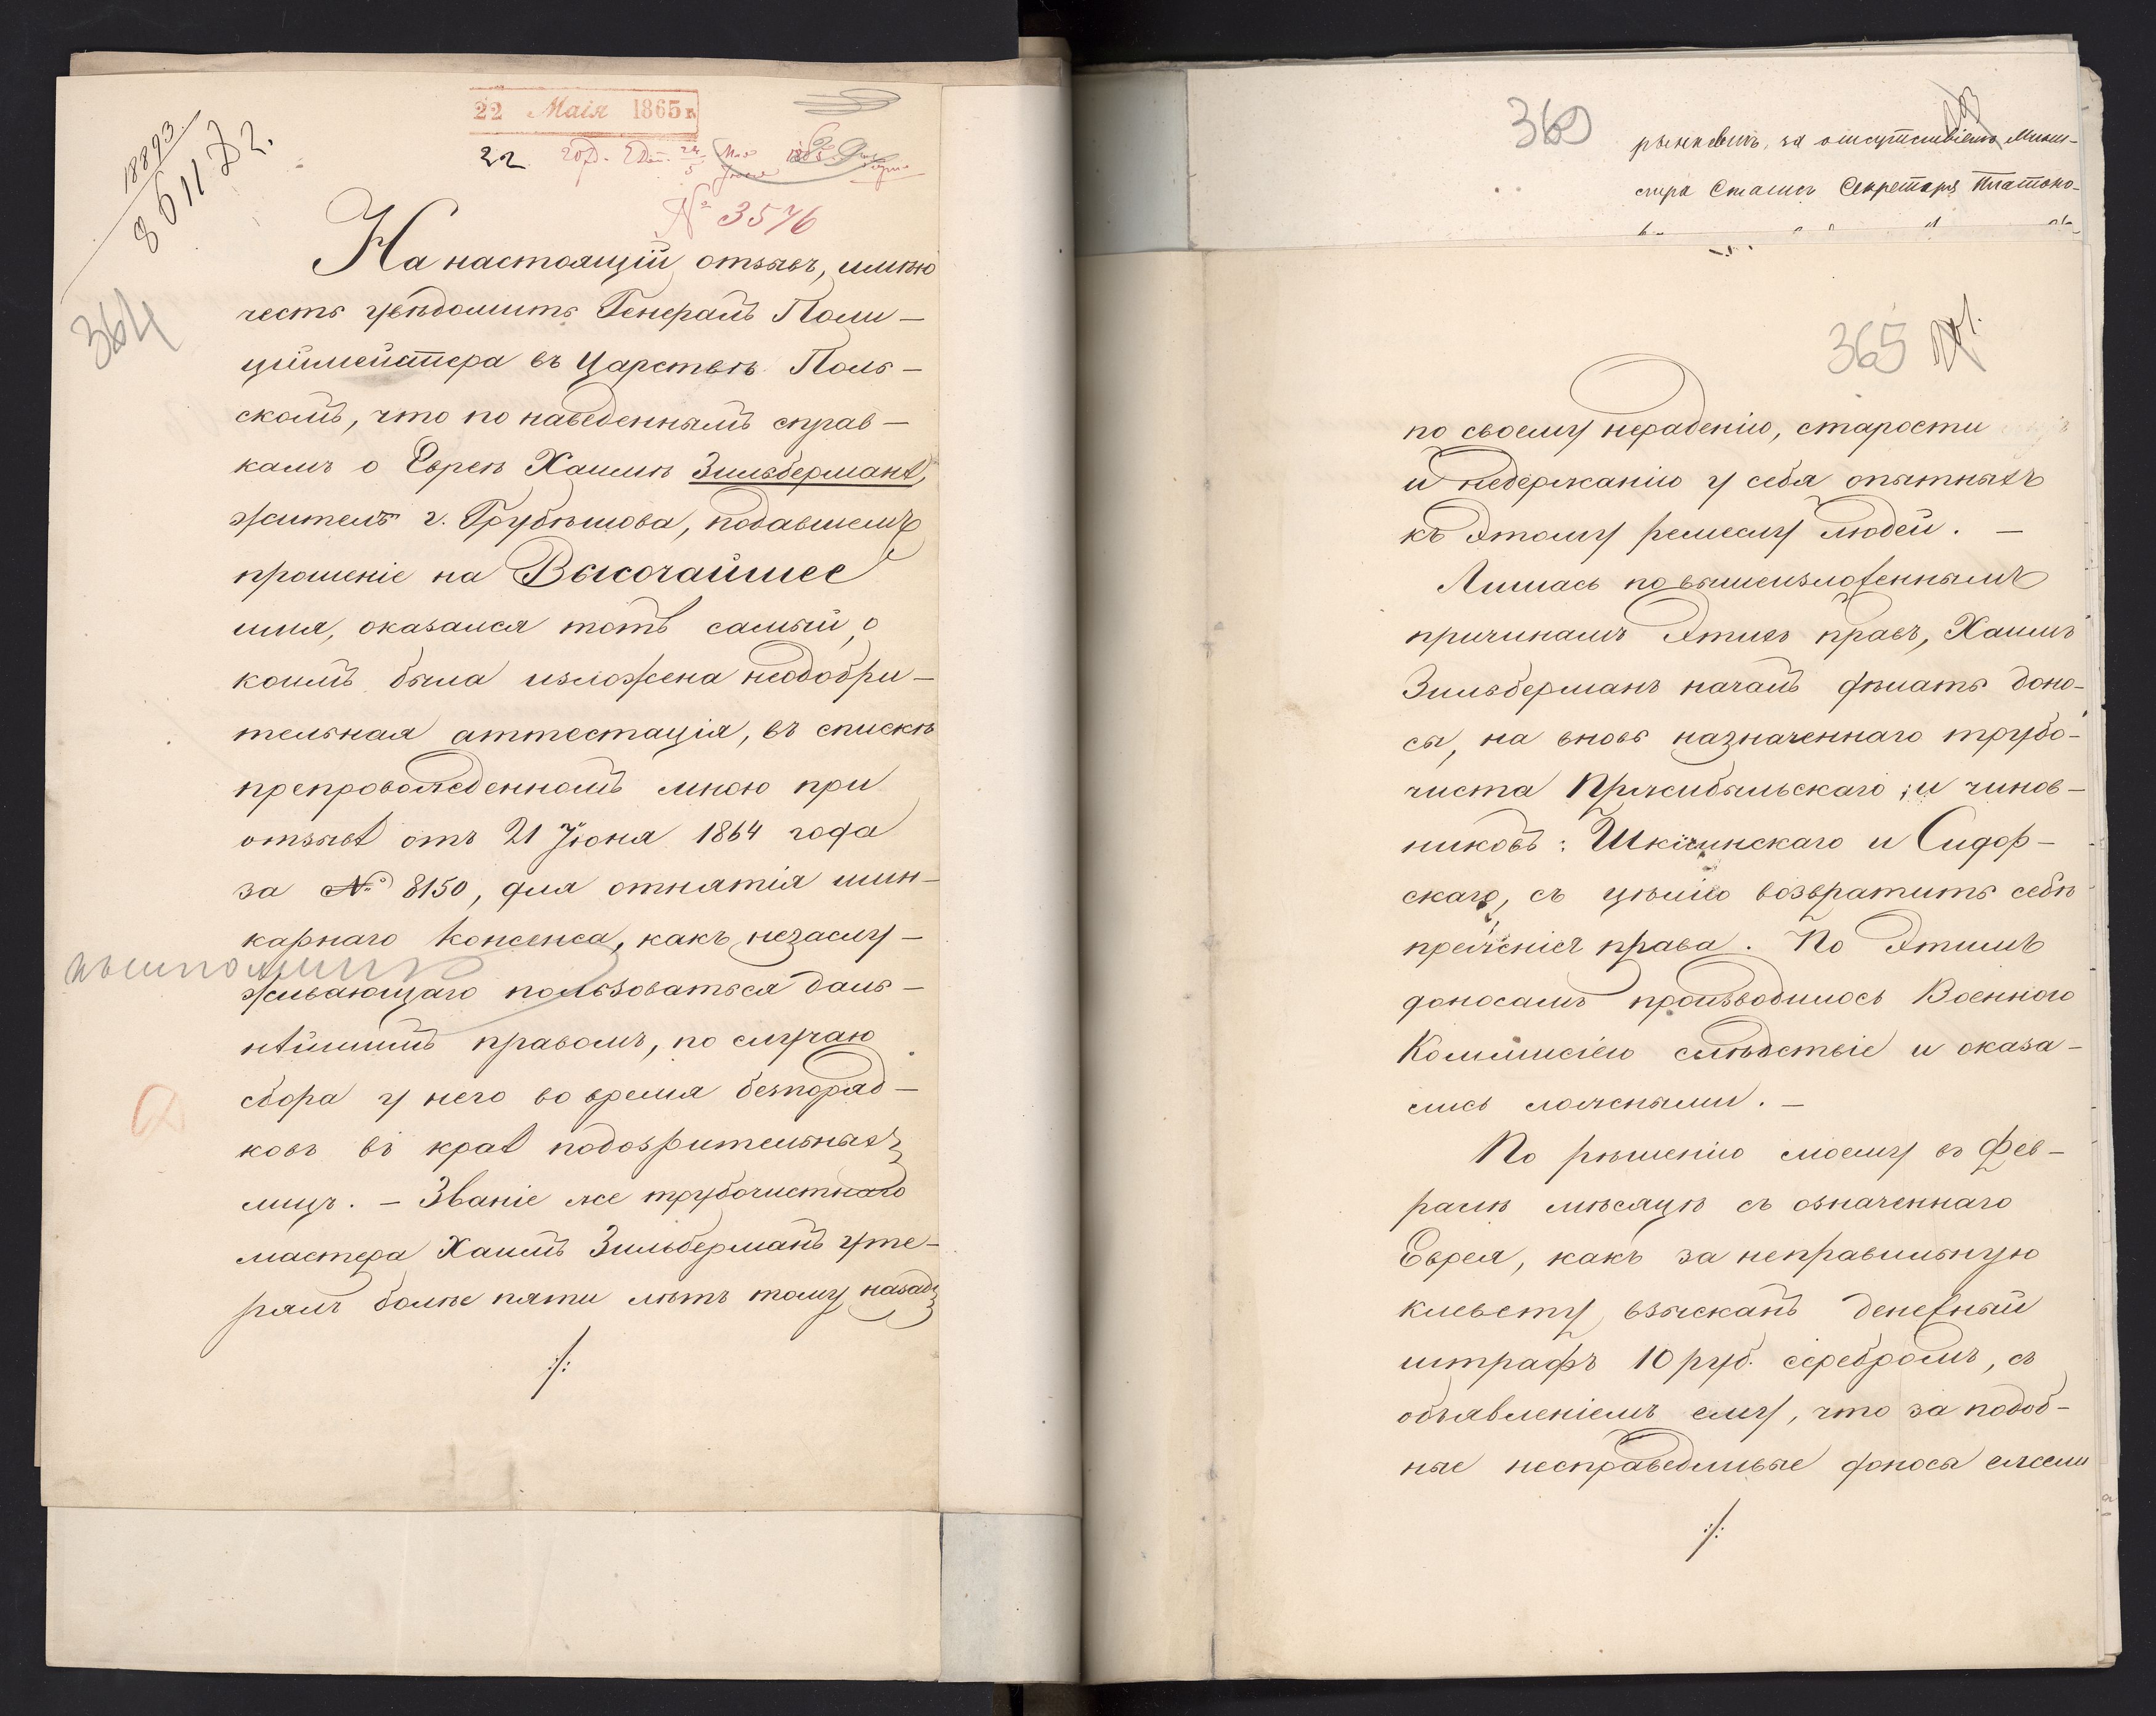 22 Маія 1865 г.
22
№ 3576
18893
8611 Д 2.
364
На настоящій отзывъ, имѣю
честь увѣдомить Генералъ Поли–
ціймейстера въ Царствѣ Поль–
скомъ, что по наведеннымъ справ–
камъ о Евреѣ Хаимѣ Зильберманѣ,
жителѣ г. Грубѣшова, подавшемъ
прошеніе на Высочайшее
имя, оказался тотъ самый, о
коимъ была изложена неодобри–
тельная аттестація, въ спискѣ
препровожденномъ мною при
отзывѣ отъ 21 Іюня 1864 года
за № 8150, для отнятія шин–
карнаго консенса, какъ незаслу–
живающаго пользоваться даль–
нѣйшимъ правомъ, по случаю
сбора у него во время безпоряд–
ковъ въ краѣ подозрительныхъ
лицъ. – Званіе же трубочистнаго
мастера Хаимъ Зильберманъ уте–
рялъ болѣе пяти лѣтъ тому назадъ
:/:
369
рынкевичъ, за отсутствіемъ Мини–
стра Статсъ Секретаря Платоно–
365
по своему нерадению, старости
и недержанію у себя опытныхъ
къ этому ремеслу людей. –
Лишась по вышеизложеннымъ
причинамъ этихъ правъ, Хаимъ
Зильберманъ началъ дѣлать доно–
сы, на вновь назначеннаго трубо–
чиста Пржибыльскаго; и чинов–
никовъ: Шкічинскаго и Сидор–
скаго, съ цѣлію возвратить себѣ
прежнія права. По этимъ
доносамъ производилось Военного
Коммисіею слѣдствіе и оказа–
лись ложными. –
По рѣшенію моему въ Фев–
ралѣ мѣсяцѣ съ означеннаго
Еврея, какъ за неправильную
клевету, взысканъ денежный
штрафъ 10 руб. серебромъ, съ
объявленіемъ ему, что за подоб–
ные несправедливые доносы ежели
:/: